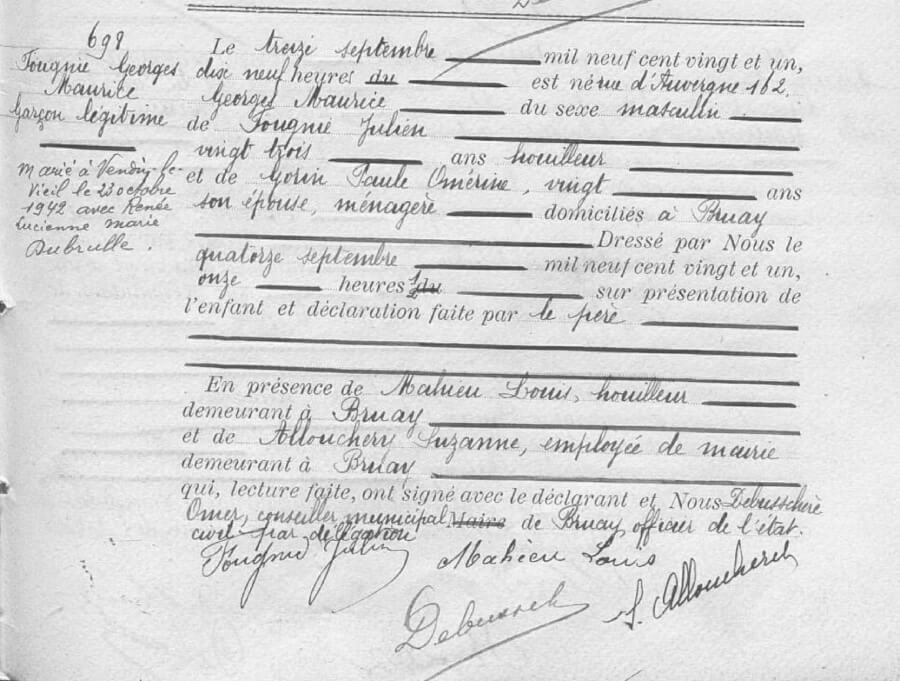 698
Fougnie Georges
Maurice
Garçon légitime
Marié à Vendin-le-
Vieil le 23 octobre
1942 avec Renée
Lucienne Marie
Dubrulle.
Le treize septembre mil neuf cent vingt et un,
dix neuf heures du est né rue d'Auvergne 162,
Georges Maurice du sexe masculin
de Fougnie Julien
vingt trois ans houilleur
et de Gorin Paule Omérine, vingt ans
son épouse, ménagère domiciliés à Bruay
Dressé par Nous le
quatorze septembre mil neuf cent vingt et un,
onze heures 1/2 du sur présentation de
l'enfant et déclaration faite par le père
En présence de Mahieu Louis, houilleur
demeurant à Bruay
et de Allouchery Suzanne, employée de mairie
demeurant à Bruay
qui, lecture faite, ont signé avec le déclarant et Nous Debusschère
Omer, conseiller municipal Maire de Bruay officier de l'état
civil par délégation
Fougnie Julien Mahieu Louis
Debussch S. Allouchery